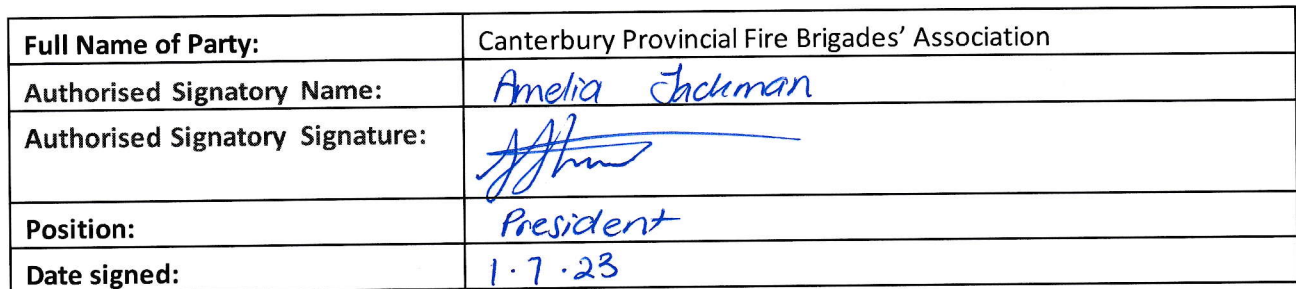 Full Name of Party: Canterbury Provincial Fire Brigades' Association
Authorised Signatory Name: Amelia Jackman
Authorised Signatory Signature:
Position: President
Date signed: 1.7.23